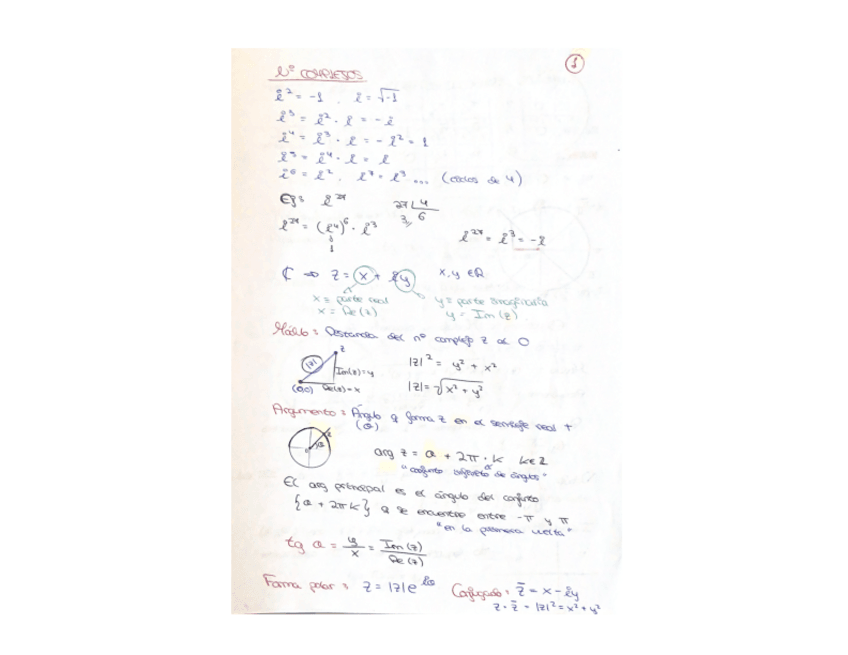 1
Nº COMPLEJOS
i² = -1 , i = √-1
i³ = i² · i = -i
i⁴ = i³ · i = -i² = 1
i⁵ = i⁴ · i = i
i⁶ = i², i⁷ = i³ ... (ciclos de 4)
Ej: i²⁷ 27 | 4
3 6
i²⁷ = (i⁴)⁶ · i³ i²⁷ = i³ = -i
1
ℂ ⇒ z = x + iy x, y ∈ ℝ
x ≡ parte real y ≡ parte imaginaria
x = Re(z) y = Im(z)
Módulo: Distancia del nº complejo z al 0
z
|z| Im(z)=y |z|² = y² + x²
(0,0) Re(z)=x |z| = √x² + y²
Argumento: Ángulo q forma z en el semieje real +
(θ)
arg z = θ + 2π · k k ∈ ℤ
"conjunto infinito de ángulos"
El arg principal es el ángulo del conjunto
{θ + 2πk} q se encuentra entre -π y π
"en la primera vuelta"
tg θ = y/x = Im(z)/Re(z)
Forma polar: z = |z|e^iθ Conjugado: z̄ = x - iy
z · z̄ = |z|² = x² + y²